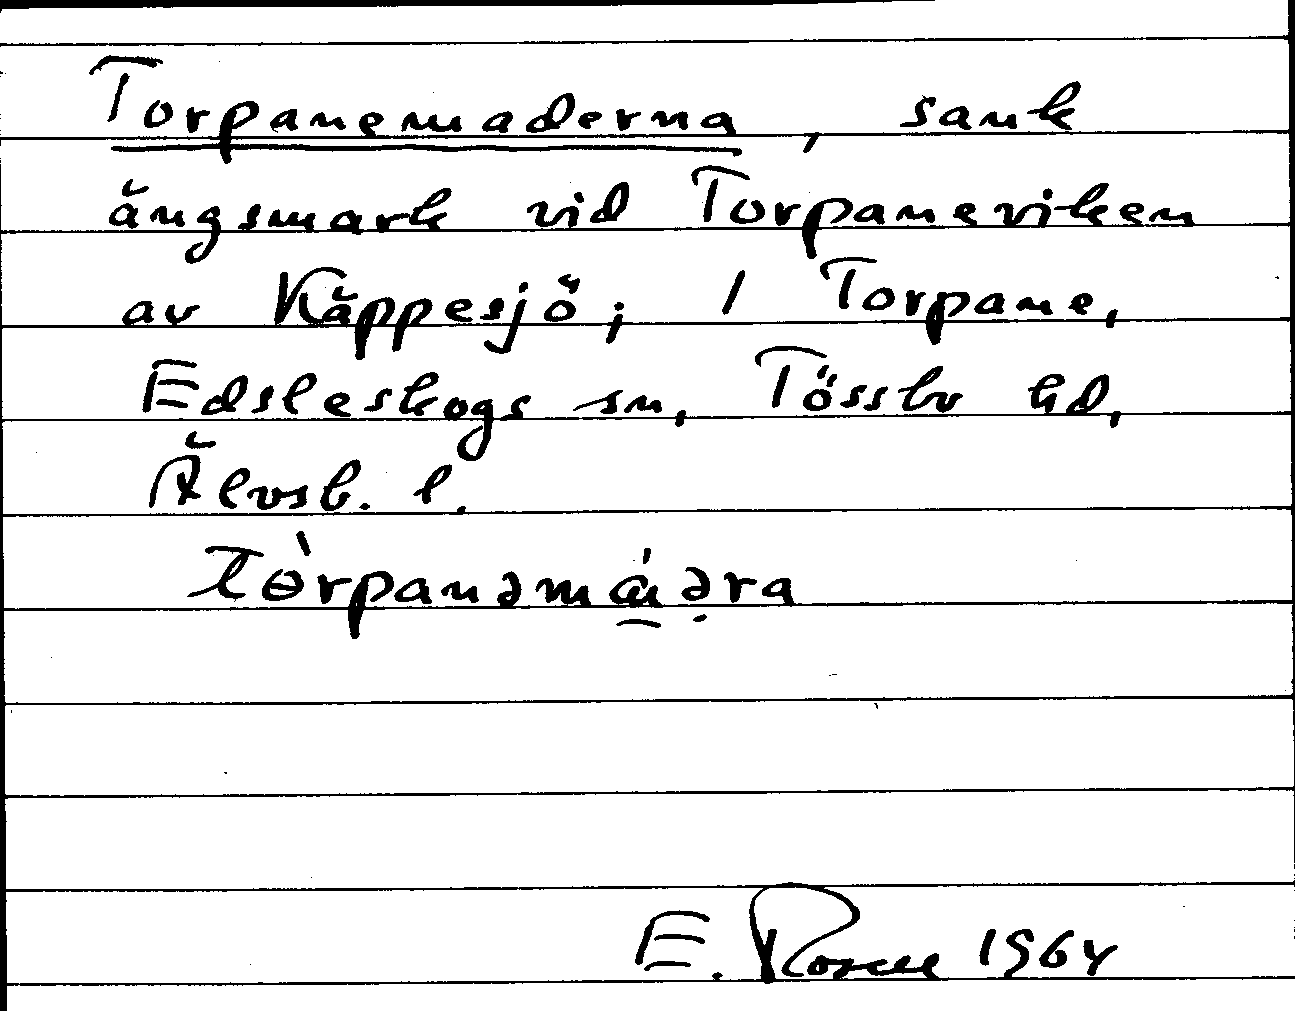 Torpanemaderna, sank
ängsmark vid Torpaneviken
av Käppesjö; 1 Torpane,
Edsleskogs sn, Tössbo hd,
Älvsb. l.
E. Rosell 1964